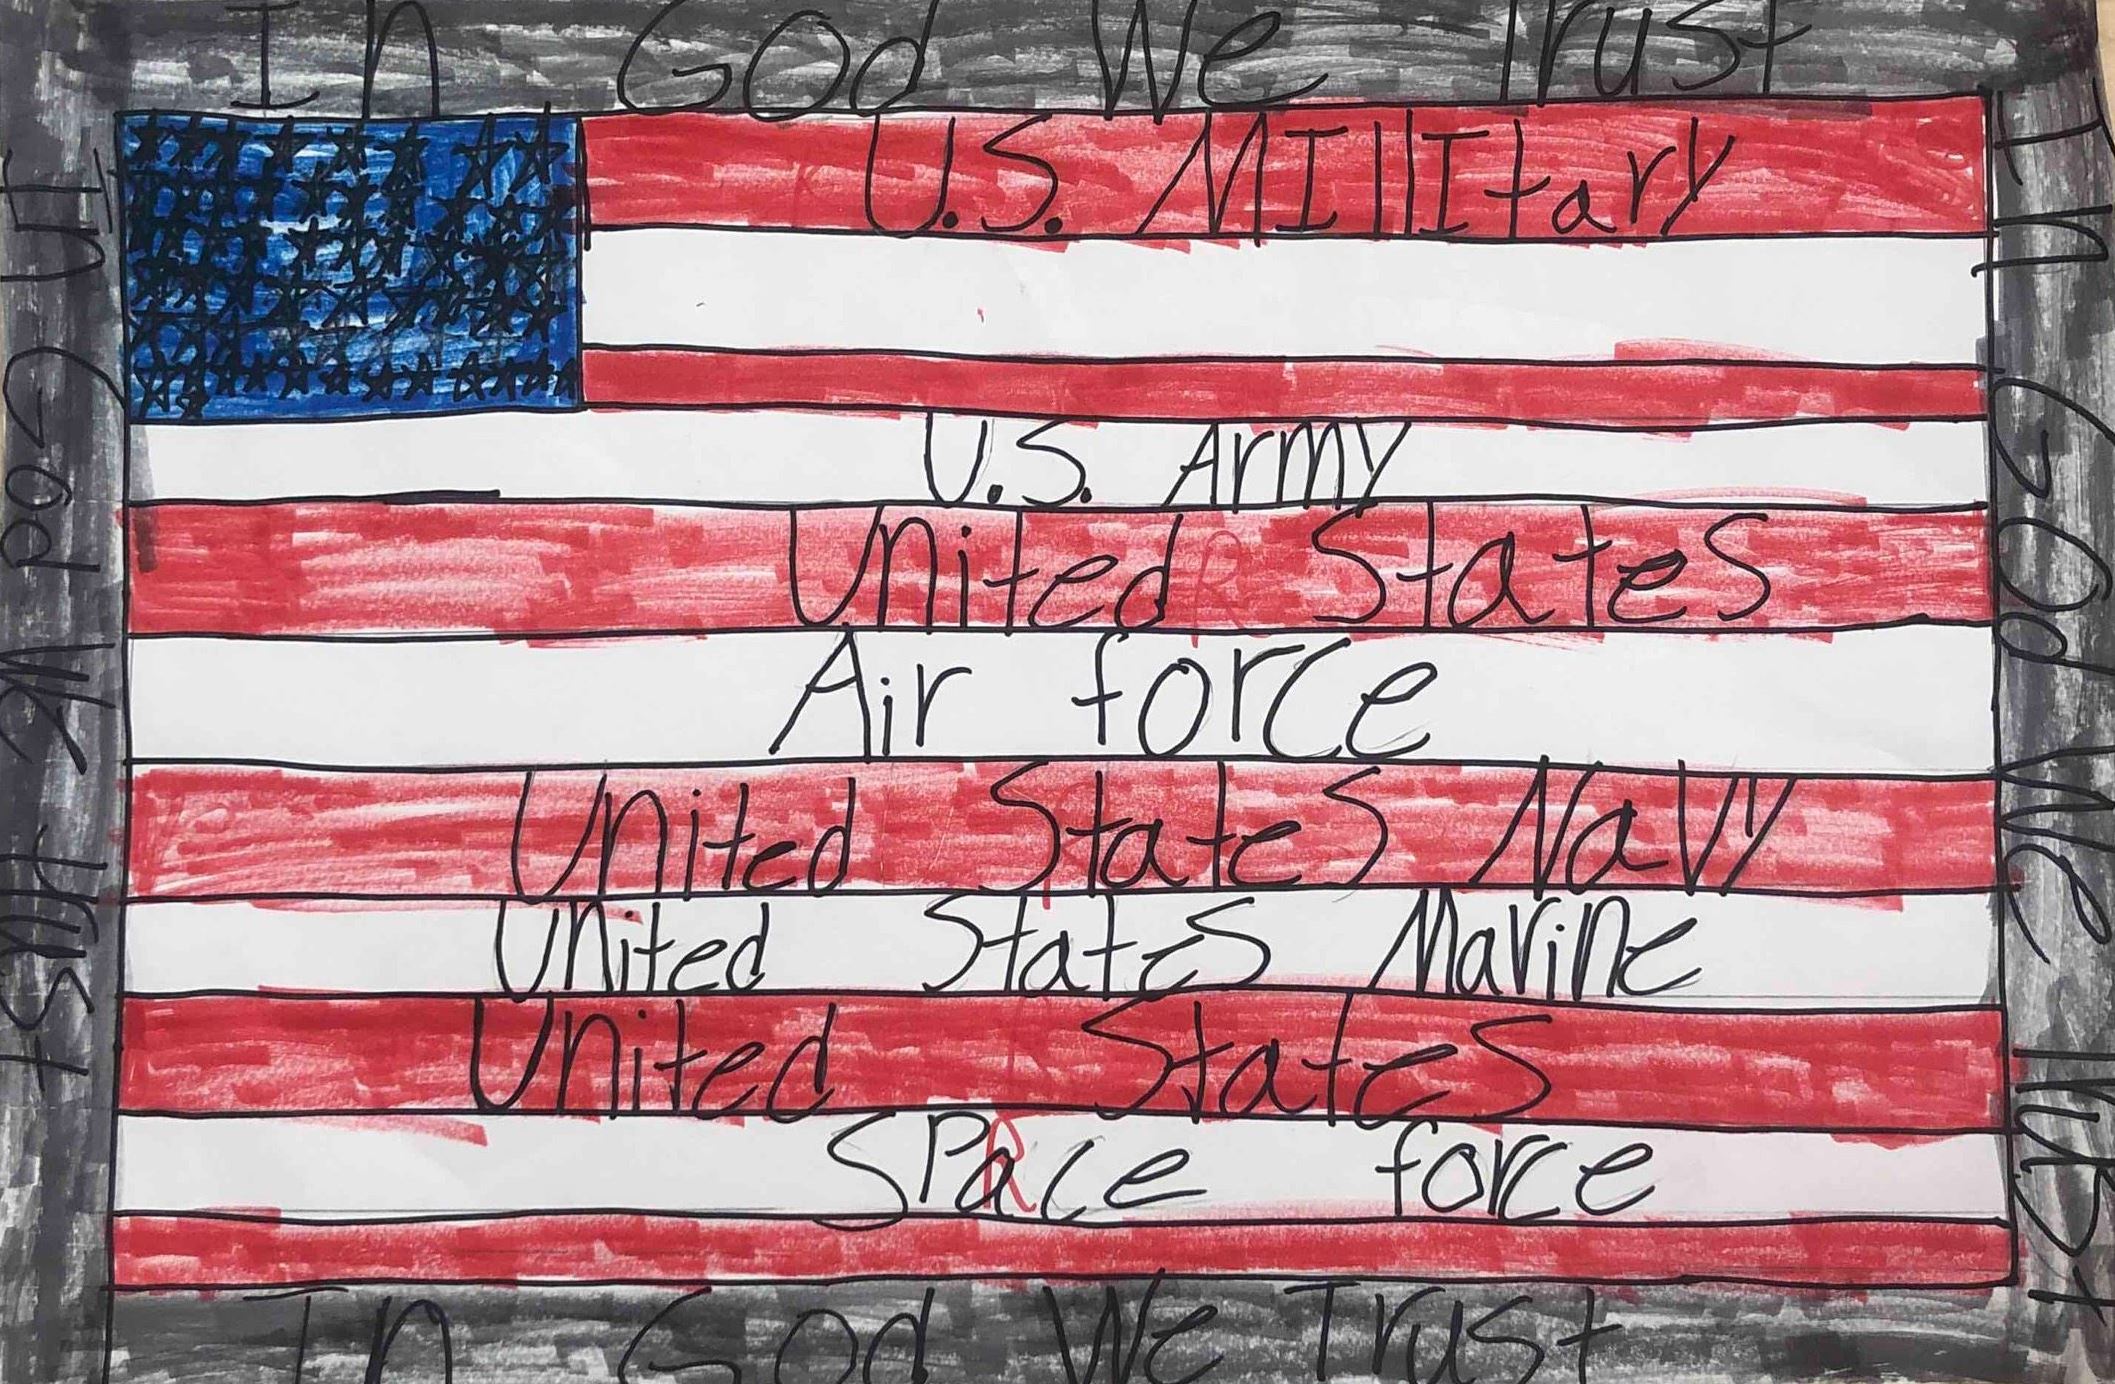 In God We Trust
U.S. MIllItary
U.S. Army
United States
Air force
United States Navy
United States Marine
United States
SPace force
In God We Trust
In God We trust
In God We Trust